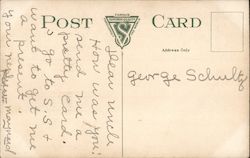 POST CARD
Address Only
Dear uncle
How was you.
send me a
pretty card.
go to S.S &
want to get me
a present.
your ne
George Schultz